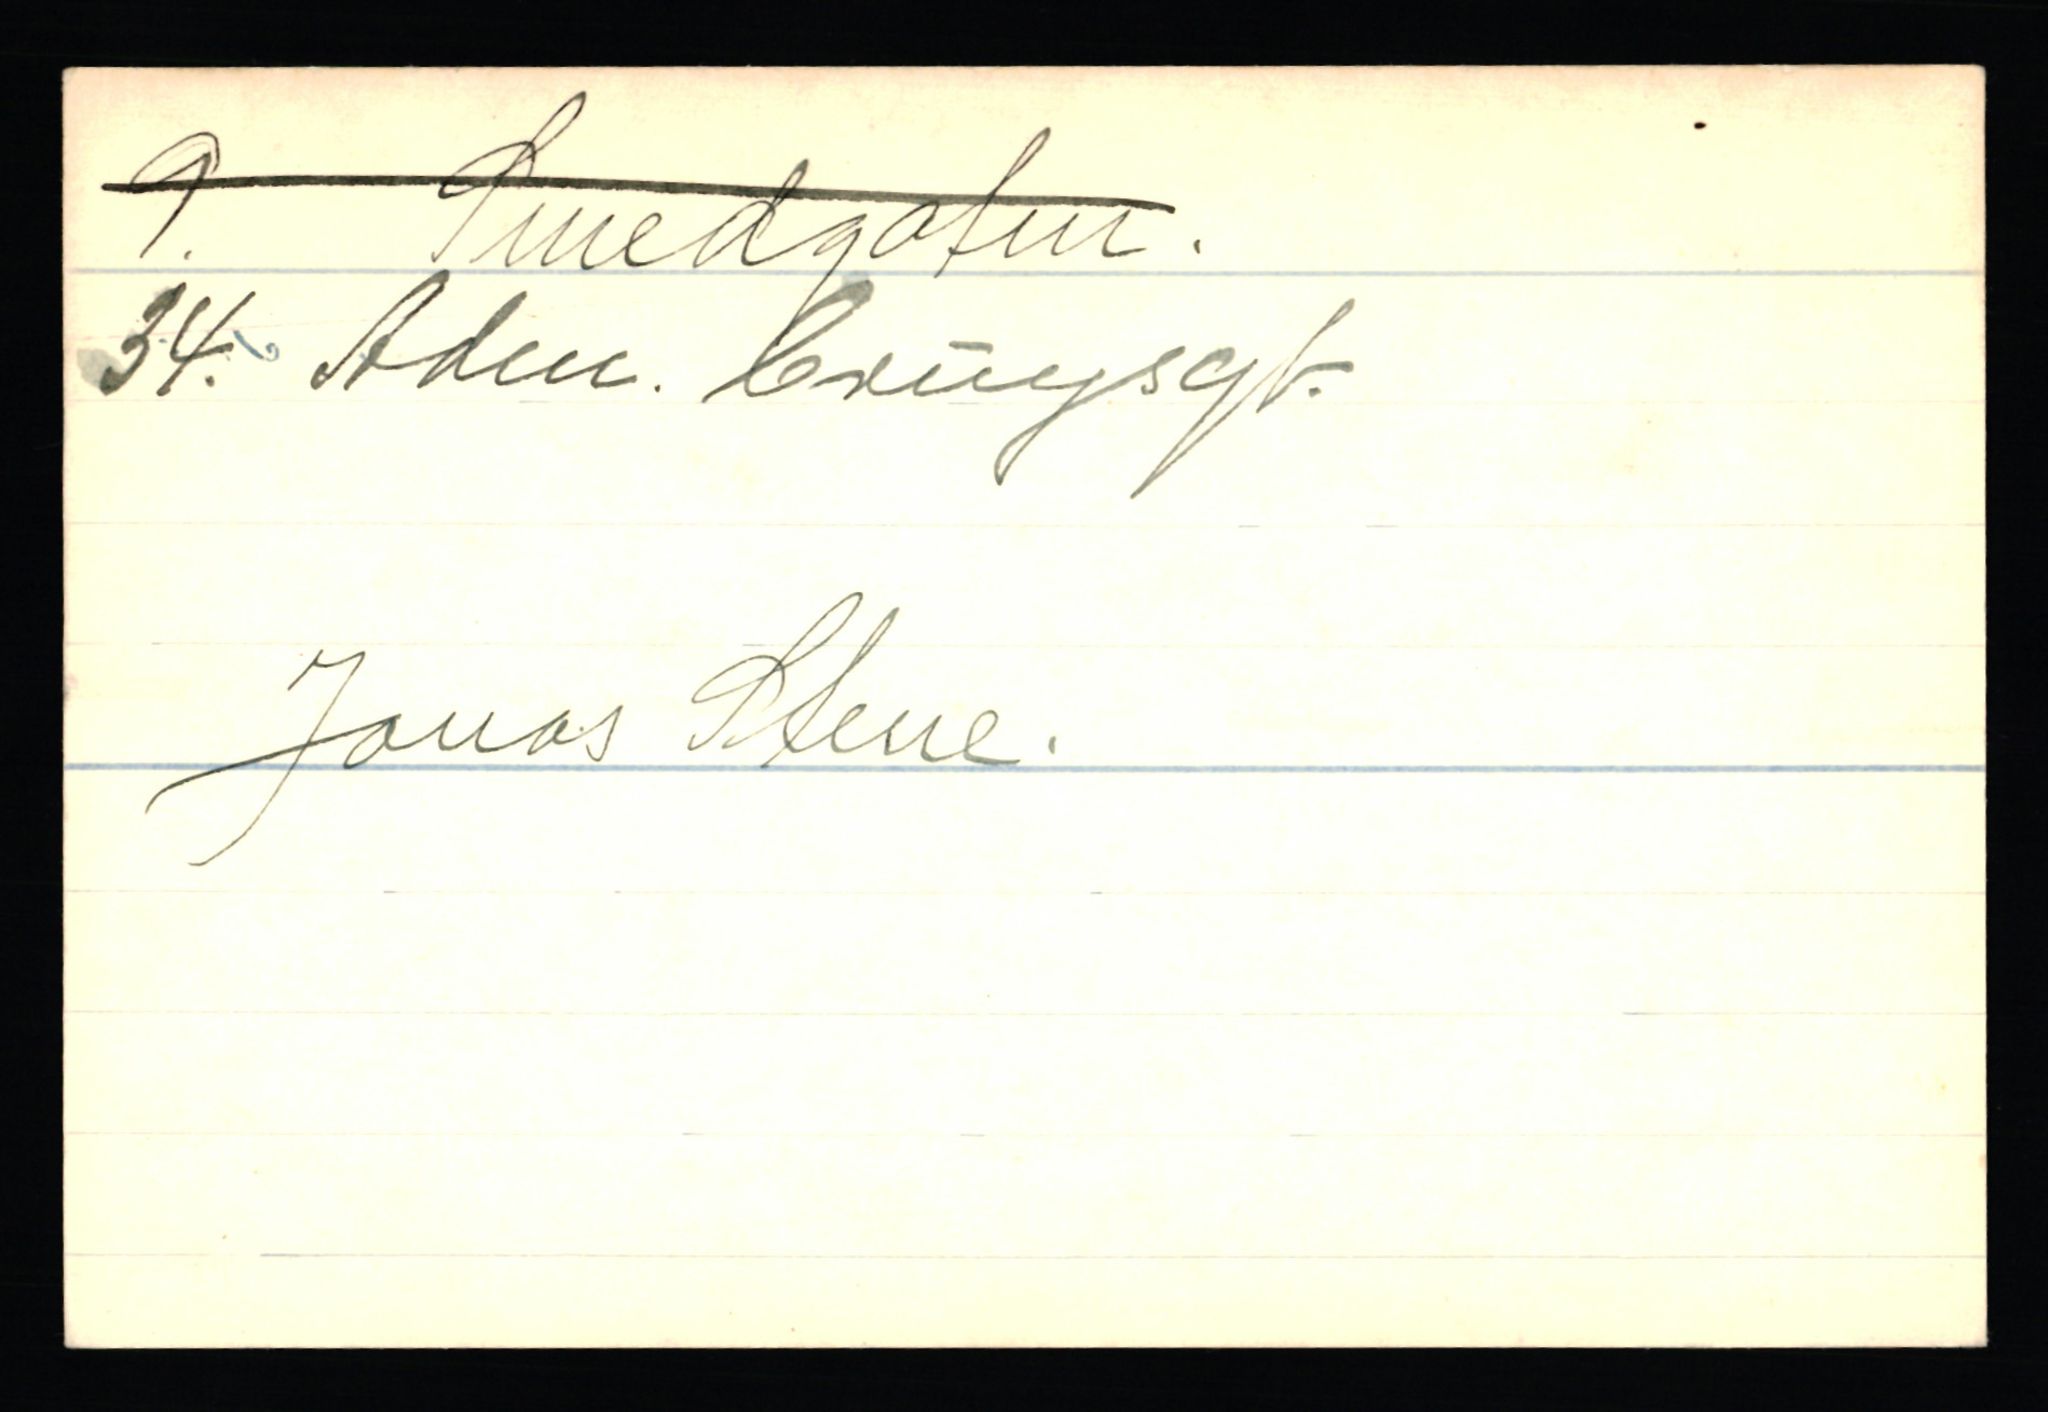 9. Smedgaten.
34. Adm. Cruysgt.
Jonas Stene.